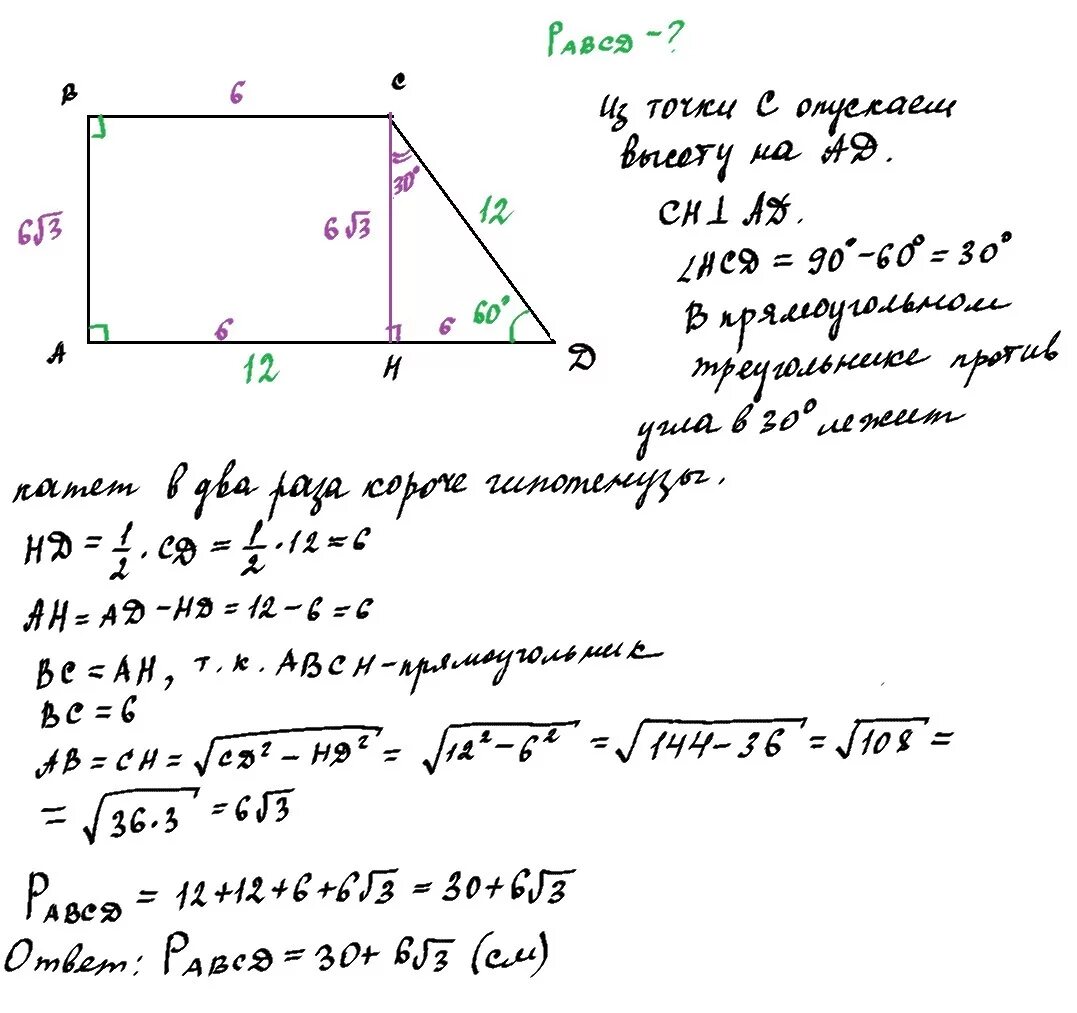 P ABCD - ?
B
6
C
6√3
6√3
30°
12
60°
6
6
A
12
H
Д
Из точки C опускаем
высоту на AД.
CH⊥AД.
∠HCД = 90° - 60° = 30°
В прямоугольном
треугольнике против
угла в 30° лежит
катет в два раза короче гипотенузы.
HД = 1/2 · CД = 1/2 · 12 = 6
AH = AД - HД = 12 - 6 = 6
BC = AH, т. к. ABCH - прямоугольник
BC = 6
AB = CH = √(CД² - HД²) = √(12² - 6²) = √(144 - 36) = √108 =
= √(36·3) = 6√3
P ABCД = 12+12+6+6√3 = 30+6√3
Ответ: P ABCД = 30+ 6√3 (см)